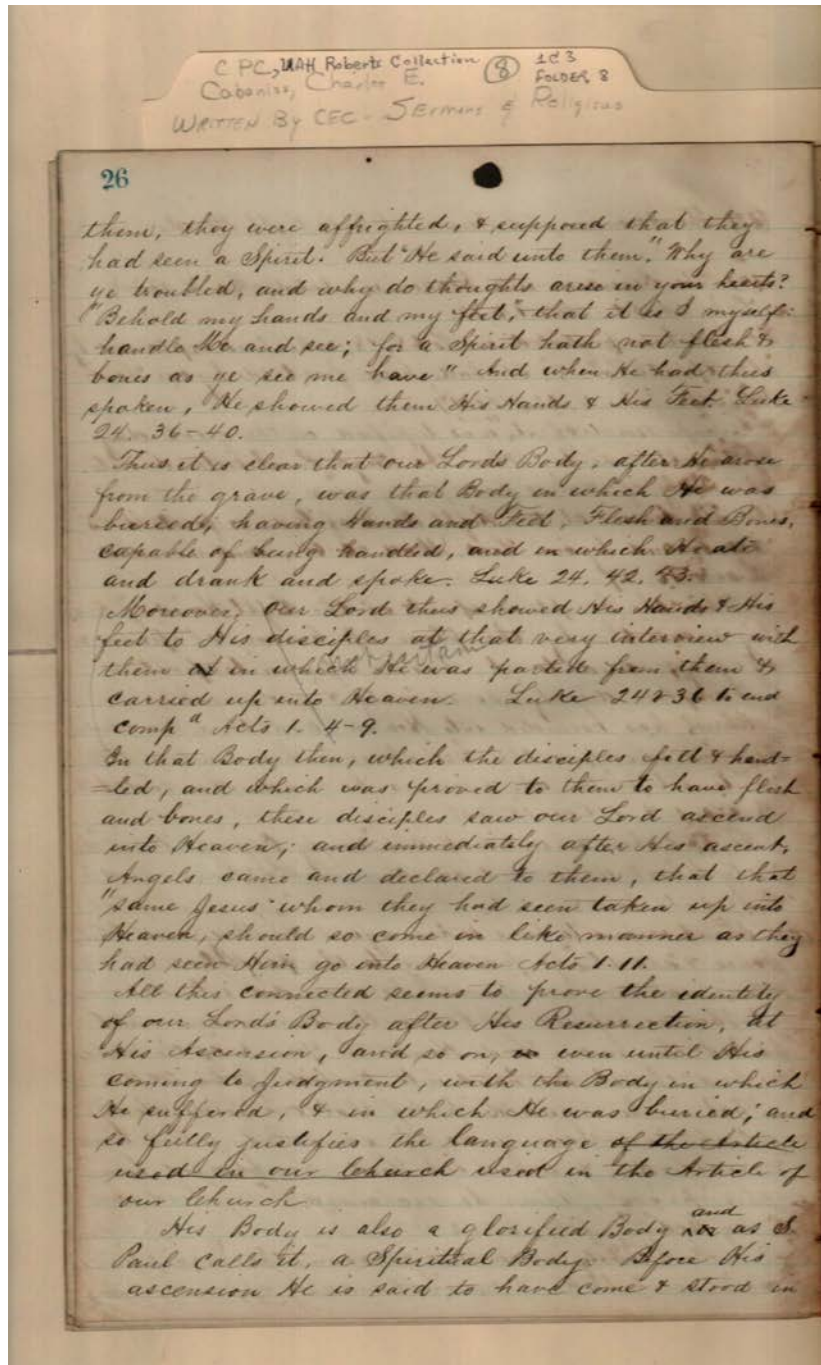 CPC, UAH Roberts Collection (8) 1C3
Cabaniss, Charles E. FOLDER 8
WRITTEN By CEC - SErmons & Religious
26
them, they were affrighted, & supposed that they
had seen a Spirit. But "He said unto them", Why are
ye troubled, and why do thoughts arise in your hearts?
"Behold my hands and my feet", that it is I myself:
handle Me and see; for a Spirit hath not flesh &
bones as ye see me have" And when He had thus
spoken, He showed them His Hands & His Feet. Luke
24. 36-40.
Thus it is clear that our Lords Body, after He arose
from the grave, was that Body in which He was
buried; having Hands and Feet, Flesh and Bones,
capable of being handled, and in which He ate
and drank and spoke. Luke 24. 42. 43.
Moreover, our Lord thus showed His Hands & His
feet to His disciples at that very interview with
them at in which He was parted from them &
carried up into Heaven. Luke 24 & 36 to end
comp d Acts 1. 4-9.
In that Body then, which the disciples felt & hand=
=led, and which was proved to them to have flesh
and bones, these disciples saw our Lord ascend
into Heaven; and immediately after His ascent,
Angels came and declared to them, that that
"same Jesus" whom they had seen taken up into
Heaven, should so come in like manner as they
had seen Him go into Heaven Acts 1. 11.
All this connected seems to prove the identity
of our Lord's Body after His Resurrection, at
His Ascension, and so on, even until His
coming to Judgment, with the Body in which
He suffered, & in which He was buried; and
so fully justifies the language of the Article
used in our Church used in the Article of
our Church
His Body is also a glorified Body and as S.
Paul calls it, a Spiritual Body. Before His
ascension He is said to have come & stood in